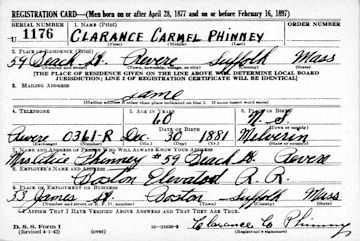 REGISTRATION CARD—(Men born on or after April 28, 1877 and on or before February 16, 1897)
SERIAL NUMBER 1. NAME (Print) ORDER NUMBER
U 1176 CLARANCE CARMEL PHINNEY
(First) (Middle) (Last)
2. PLACE OF RESIDENCE (Print)
59 Beach St. Revere Suffolk Mass
(Number and street) (Town, township, village, or city) (County) (State)
[THE PLACE OF RESIDENCE GIVEN ON THE LINE ABOVE WILL DETERMINE LOCAL BOARD
JURISDICTION; LINE 2 OF REGISTRATION CERTIFICATE WILL BE IDENTICAL]
3. MAILING ADDRESS
Same
(Mailing address if other than place indicated on line 2. If same insert word same)
4. TELEPHONE 5. AGE IN YEARS 6. PLACE OF BIRTH
60 N.S.
DATE OF BIRTH (Town or county)
Revere 0361-R Dec. 30 1881
(State or country)
7. NAME AND ADDRESS OF PERSON WHO WILL ALWAYS KNOW YOUR ADDRESS
Mrs Alice Phinney #59 Beach St. Revere
8. EMPLOYER'S NAME AND ADDRESS
Boston Elevated R.R.
9. PLACE OF EMPLOYMENT OR BUSINESS
33 James St. Boston Suffolk Mass
(Number and street or R. F. D. number) (Town) (County) (State)
I AFFIRM THAT I HAVE VERIFIED ABOVE ANSWERS AND THAT THEY ARE TRUE.
D. S. S. Form 1
(Revised 4-1-42) (over)
Clarence C. Phinney
(Registrant's signature)